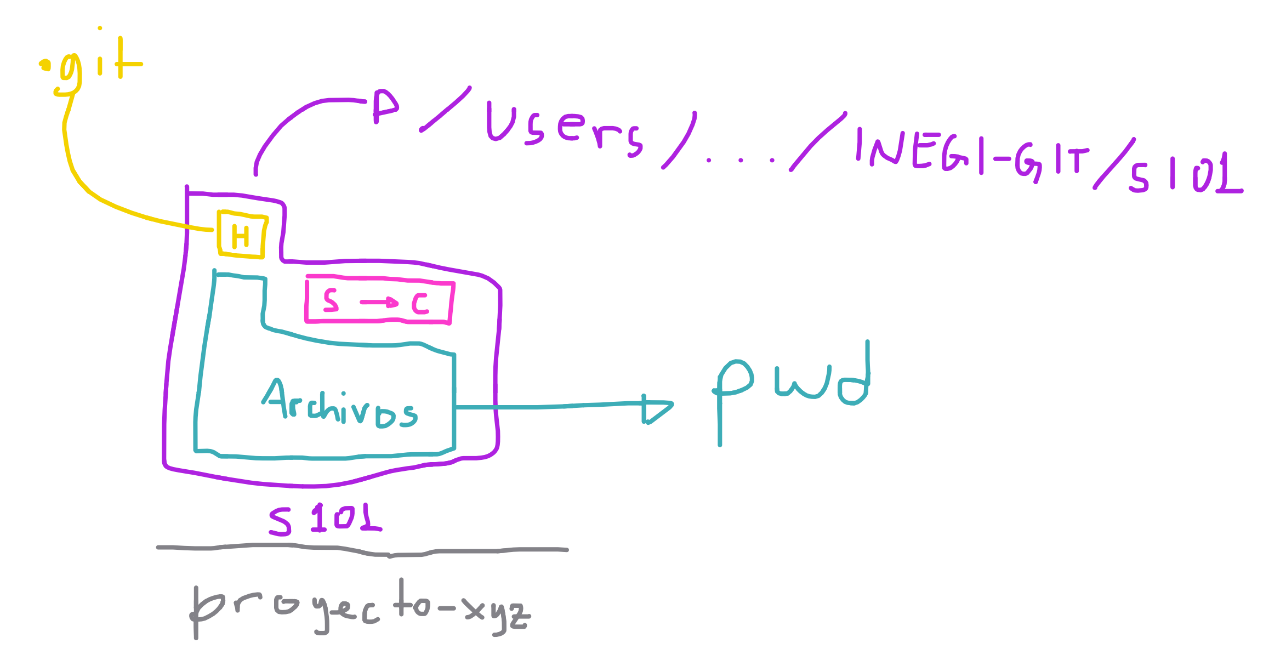 .git
/Users/.../INEGI-GIT/s101
H
S → C
Archivos
pwd
s101
proyecto-xyz